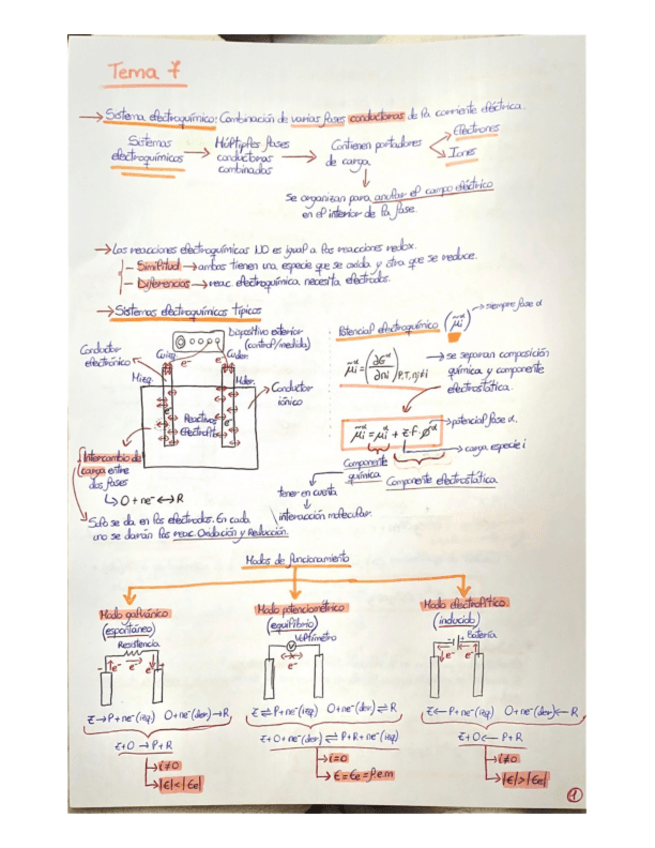 Tema 7
→ Sistema electroquímico: Combinación de varias fases conductoras de la corriente eléctrica.
Sistemas electroquímicos → Múltiples fases conductoras combinadas → Contienen portadores de carga
Electrones
Iones
Se organizan para anular el campo eléctrico
en el interior de la fase.
→ Las reacciones electroquímicas NO es igual a las reacciones redox.
- Similitud → ambas tienen una especie que se oxida y otra que se reduce.
- Diferencias → reac. electroquímica necesita electrodos.
→ Sistemas electroquímicos típicos
Dispositivo exterior
(control/medida)
Conductor
electrónico
Cuizq
Cuder.
e⁻
e⁻
Mizq.
Mder.
Conductor
iónico
Reactivos
Electrolito
e⁻
e⁻
Intercambio de
carga entre
dos fases
↳ O + ne⁻ ↔ R
Solo se da en los electrodos. En cada
uno se darán las reac. Oxidación y Reducción.
Potencial electroquímico (μ̃iᵅ) → siempre fase α
μ̃iᵅ = (∂Gᵅ/∂ni) P,T,nj≠i
→ se separan composición
química y componente
electrostática.
μ̃iᵅ = μiᵅ + z·F·Øᵅ
→ potencial fase α.
→ carga especie i
Componente
química
Componente electrostática
tener en cuenta
interacción molecular.
Modos de funcionamiento
Modo galvánico
(espontáneo)
Resistencia
- e⁻ e⁻ e⁻ +
Z → P + ne⁻ (izq) O + ne⁻ (der) → R
Z + O → P + R
→ i≠0
→ |E| < |Ee|
Modo potenciométrico
(equilibrio)
Voltímetro
V
e⁻
Z ⇌ P + ne⁻ (izq) O + ne⁻ (der) ⇌ R
Z + O + ne⁻ (der) ⇌ P + R + ne⁻ (izq)
→ i=0
→ E = Ee = f.e.m
Modo electrolítico
(inducido)
- + Batería
e⁻ e⁻
Z ← P + ne⁻ (izq) O + ne⁻ (der) ← R
Z + O ← P + R
→ i≠0
→ |E| > |Ee|
1